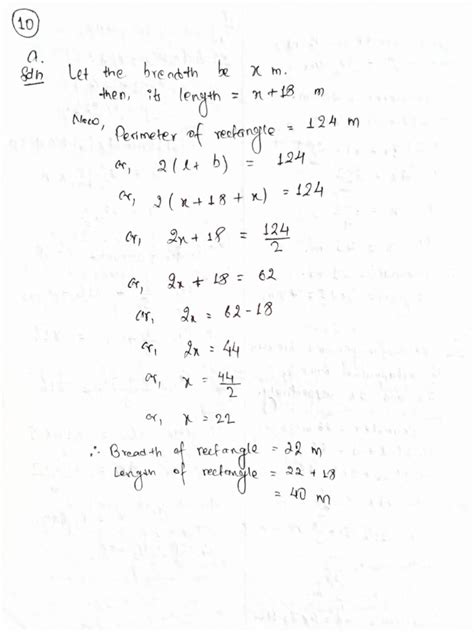 10
a.
Soln Let the breadth be x m.
then, its length = x+18 m
Now, Perimeter of rectangle = 124 m
or, 2(l+b) = 124
or, 2(x+18+x) = 124
or, 2x+18 = 124/2
or, 2x + 18 = 62
or, 2x = 62-18
or, 2x = 44
or, x = 44/2
or, x = 22
∴ Breadth of rectangle = 22 m
Length of rectangle = 22 + 18
= 40 m